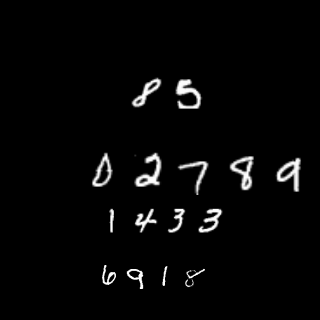 85
02789
1433
6918